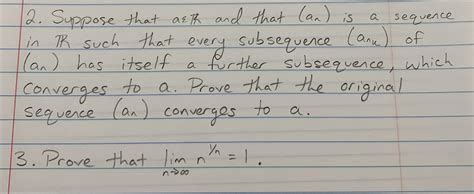 2. Suppose that a∈ℝ and that (aₙ) is a sequence
in ℝ such that every subsequence (aₙₖ) of
(aₙ) has itself a further subsequence, which
converges to a. Prove that the original
sequence (aₙ) converges to a.
3. Prove that lim n^(1/n) = 1.
n→∞